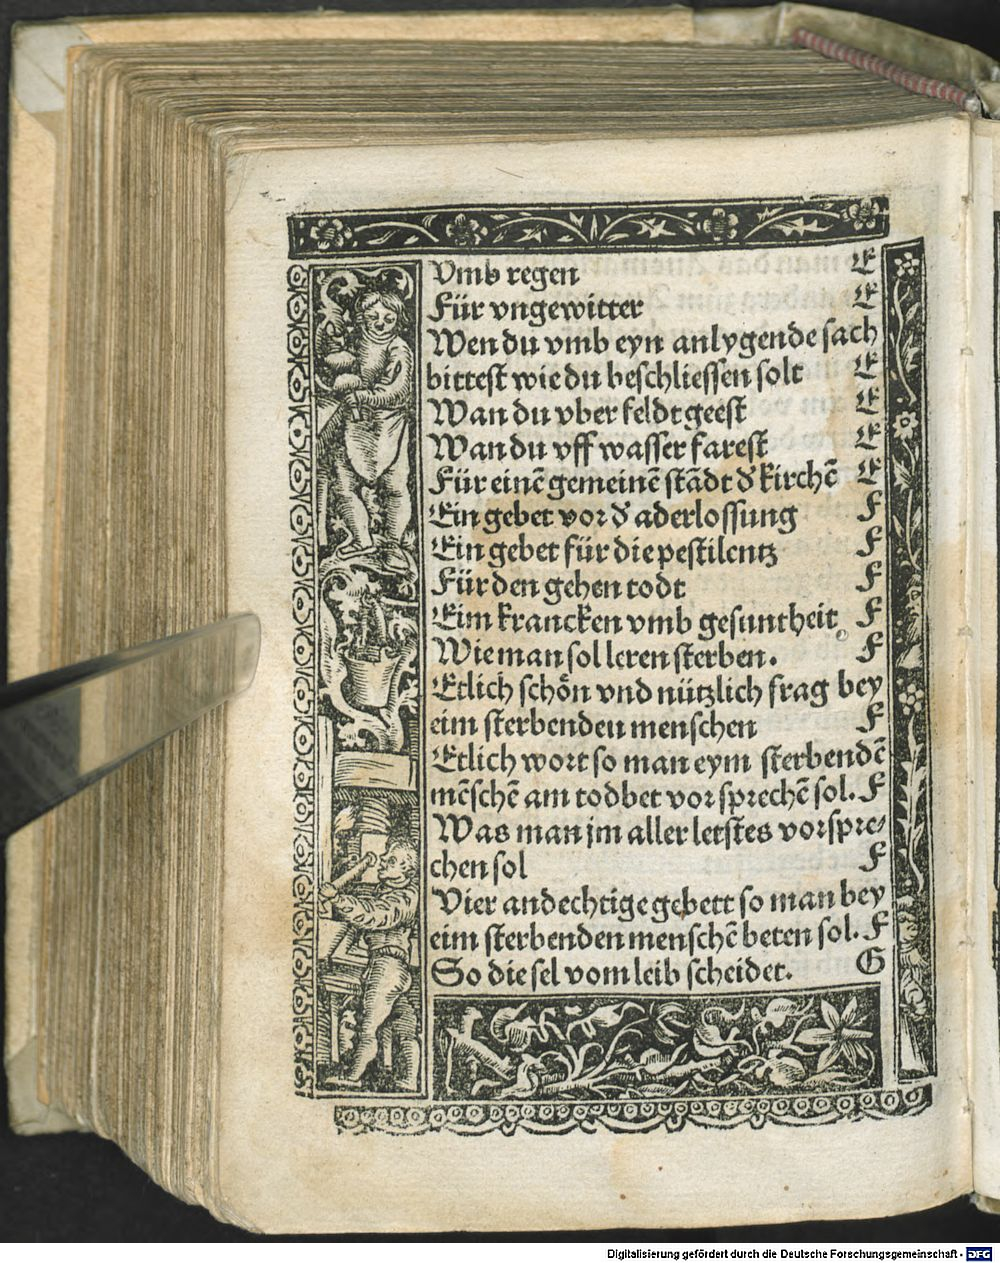 Vmb regen E
Für vngewitter E
Wen du vmb eyn anlygende sach
bittest wie du beschliessen solt E
Wan du vber feldt geest E
Wan du vff wasser farest E
Für einē gemeinē stādt d' kirchē E
Ein gebet vor d' aderlossung F
Ein gebet für die pestilentz F
Für den gehen todt F
Eim krancken vmb gesuntheit F
Wie man sol leren sterben. F
Etlich schön vnd nützlich frag bey
eim sterbenden menschen F
Etlich wort so man eym sterbendē
mēschē am todbet vor sprechē sol. F
Was man jm aller letstes vorspre⸗
chen sol F
Vier andechtige gebett so man bey
eim sterbenden menschē beten sol. F
So die sel vom leib scheidet. G
Digitalisierung gefördert durch die Deutsche Forschungsgemeinschaft - DFG